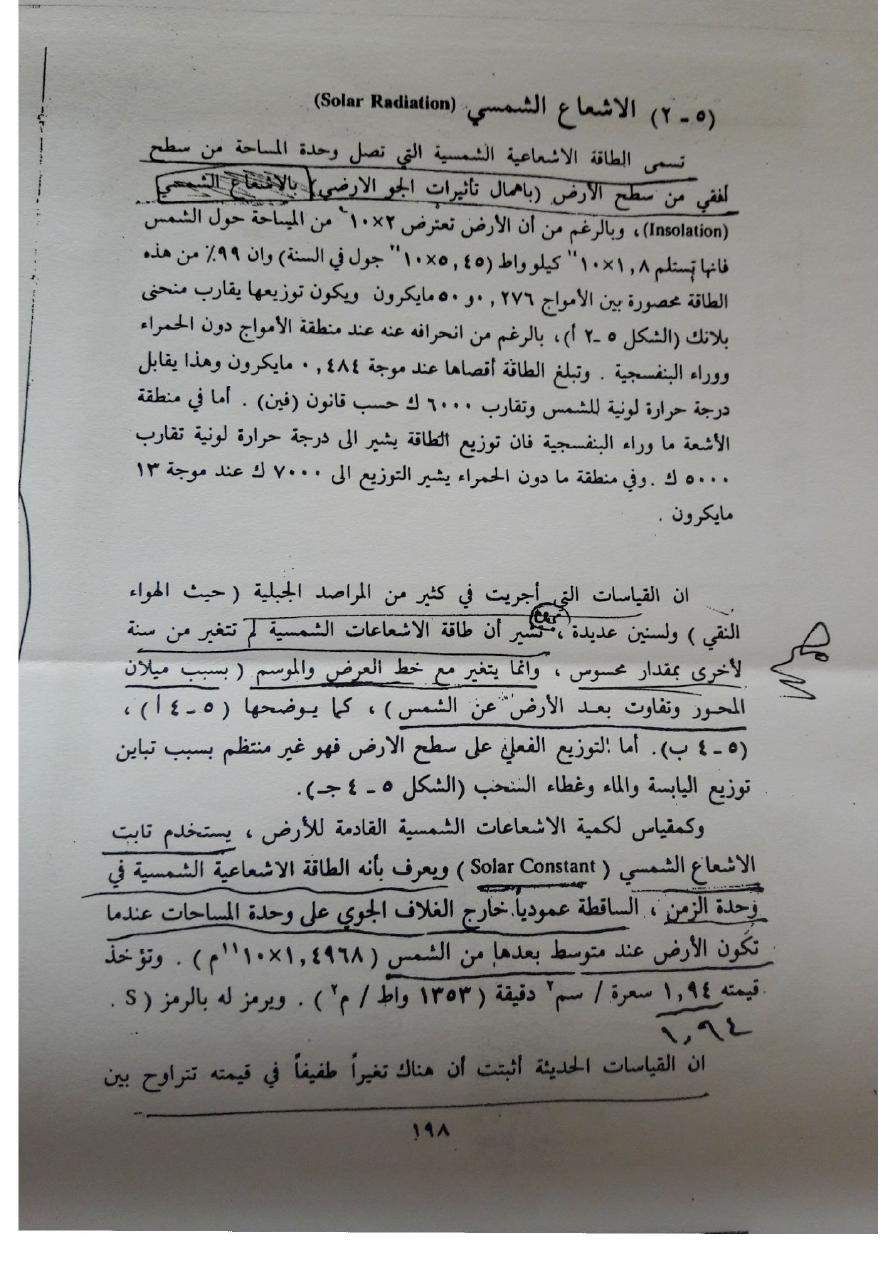 (٥ ـ ٢) الاشعاع الشمسي (Solar Radiation)
تسمى الطاقة الاشعاعية الشمسية التي تصل وحدة المساحة من سطح
أفقي من سطح الأرض (باهمال تأثيرات الجو الارضي) بالاشعاع الشمسي
(Insolation)، وبالرغم من أن الأرض تعترض ٢×١٠ من المساحة حول الشمس
فانها تستلم ١,٨×١٠ كيلو واط (٥,٤٥×١٠ جول في السنة) وان ٩٩٪ من هذه
الطاقة محصورة بين الأمواج ٠,٢٧٦ و ٥٠ مايكرون ويكون توزيعها يقارب منحنى
بلانك (الشكل ٥ ـ ٢ أ)، بالرغم من انحرافه عنه عند منطقة الأمواج دون الحمراء
ووراء البنفسجية . وتبلغ الطاقة أقصاها عند موجة ٠,٤٨٤ مايكرون وهذا يقابل
درجة حرارة لونية للشمس وتقارب ٦٠٠٠ ك حسب قانون (فين) . أما في منطقة
الأشعة ما وراء البنفسجية فان توزيع الطاقة يشير الى درجة حرارة لونية تقارب
٥٠٠٠ ك . وفي منطقة ما دون الحمراء يشير التوزيع الى ٧٠٠٠ ك عند موجة ١٣
مايكرون .
ان القياسات التي أجريت في كثير من المراصد الجبلية ( حيث الهواء
النقي ) ولسنين عديدة ، تشير أن طاقة الاشعاعات الشمسية لم تتغير من سنة
لأخرى بمقدار محسوس ، وانما يتغير مع خط العرض والموسم ( بسبب ميلان
المحور وتفاوت بعد الأرض عن الشمس ) ، كما يوضحها ( ٥ ـ ٤ أ ) ،
(٥ ـ ٤ ب). أما التوزيع الفعلي على سطح الارض فهو غير منتظم بسبب تباين
توزيع اليابسة والماء وغطاء السحب (الشكل ٥ ـ ٤ جـ).
وكمقياس لكمية الاشعاعات الشمسية القادمة للأرض ، يستخدم ثابت
الاشعاع الشمسي ( Solar Constant ) ويعرف بأنه الطاقة الاشعاعية الشمسية في
وحدة الزمن ، الساقطة عمودياً خارج الغلاف الجوي على وحدة المساحات عندما
تكون الأرض عند متوسط بعدها من الشمس ( ١,٤٩٦٨×١٠¹¹م ) . وتؤخذ
قيمته ١,٩٤ سعرة / سم٢ دقيقة ( ١٣٥٣ واط / م٢ ) . ويرمز له بالرمز ( S .
١,٩٤
ان القياسات الحديثة أثبتت أن هناك تغيراً طفيفاً في قيمته تتراوح بين
١٩٨